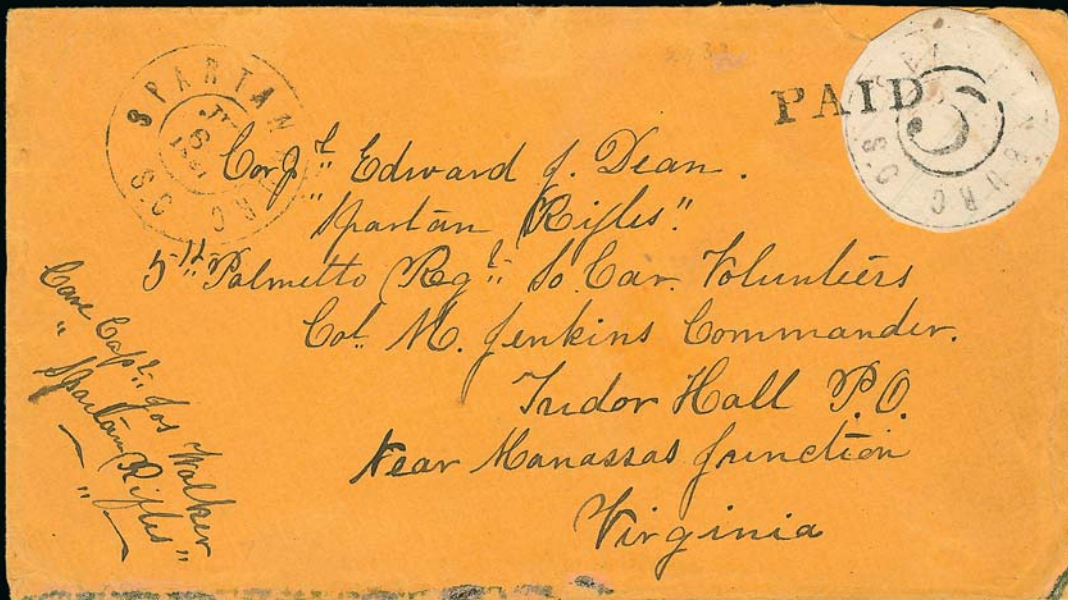 SPARTANBURG S.C.
6
1861
PAID
5
S.C. URG
Corpl. Edward J. Dean.
"Spartan Rifles".
5th Palmetto Regt. So. Car. Volunteers
Col. M. Jenkins Commander.
Tudor Hall P.O.
Near Manassas Junction
Virginia
Care Capt. Jos Walker
"Spartan Rifles"